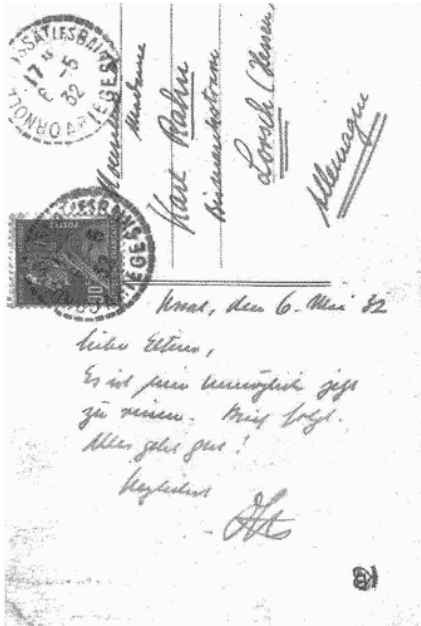 USSAT LES BAINS
17
6 -5
32
ARIEGE
Monsieur
Madame
Karl Rahn
Bismarckstrasse
Lorsch (Hessen)
Allemagne
POSTES
Ussat, den 6. Mai 32
Liebe Eltern,
Es ist unmöglich jetzt
zu Brief folgt.
Alles geht gut!
Herzlichst